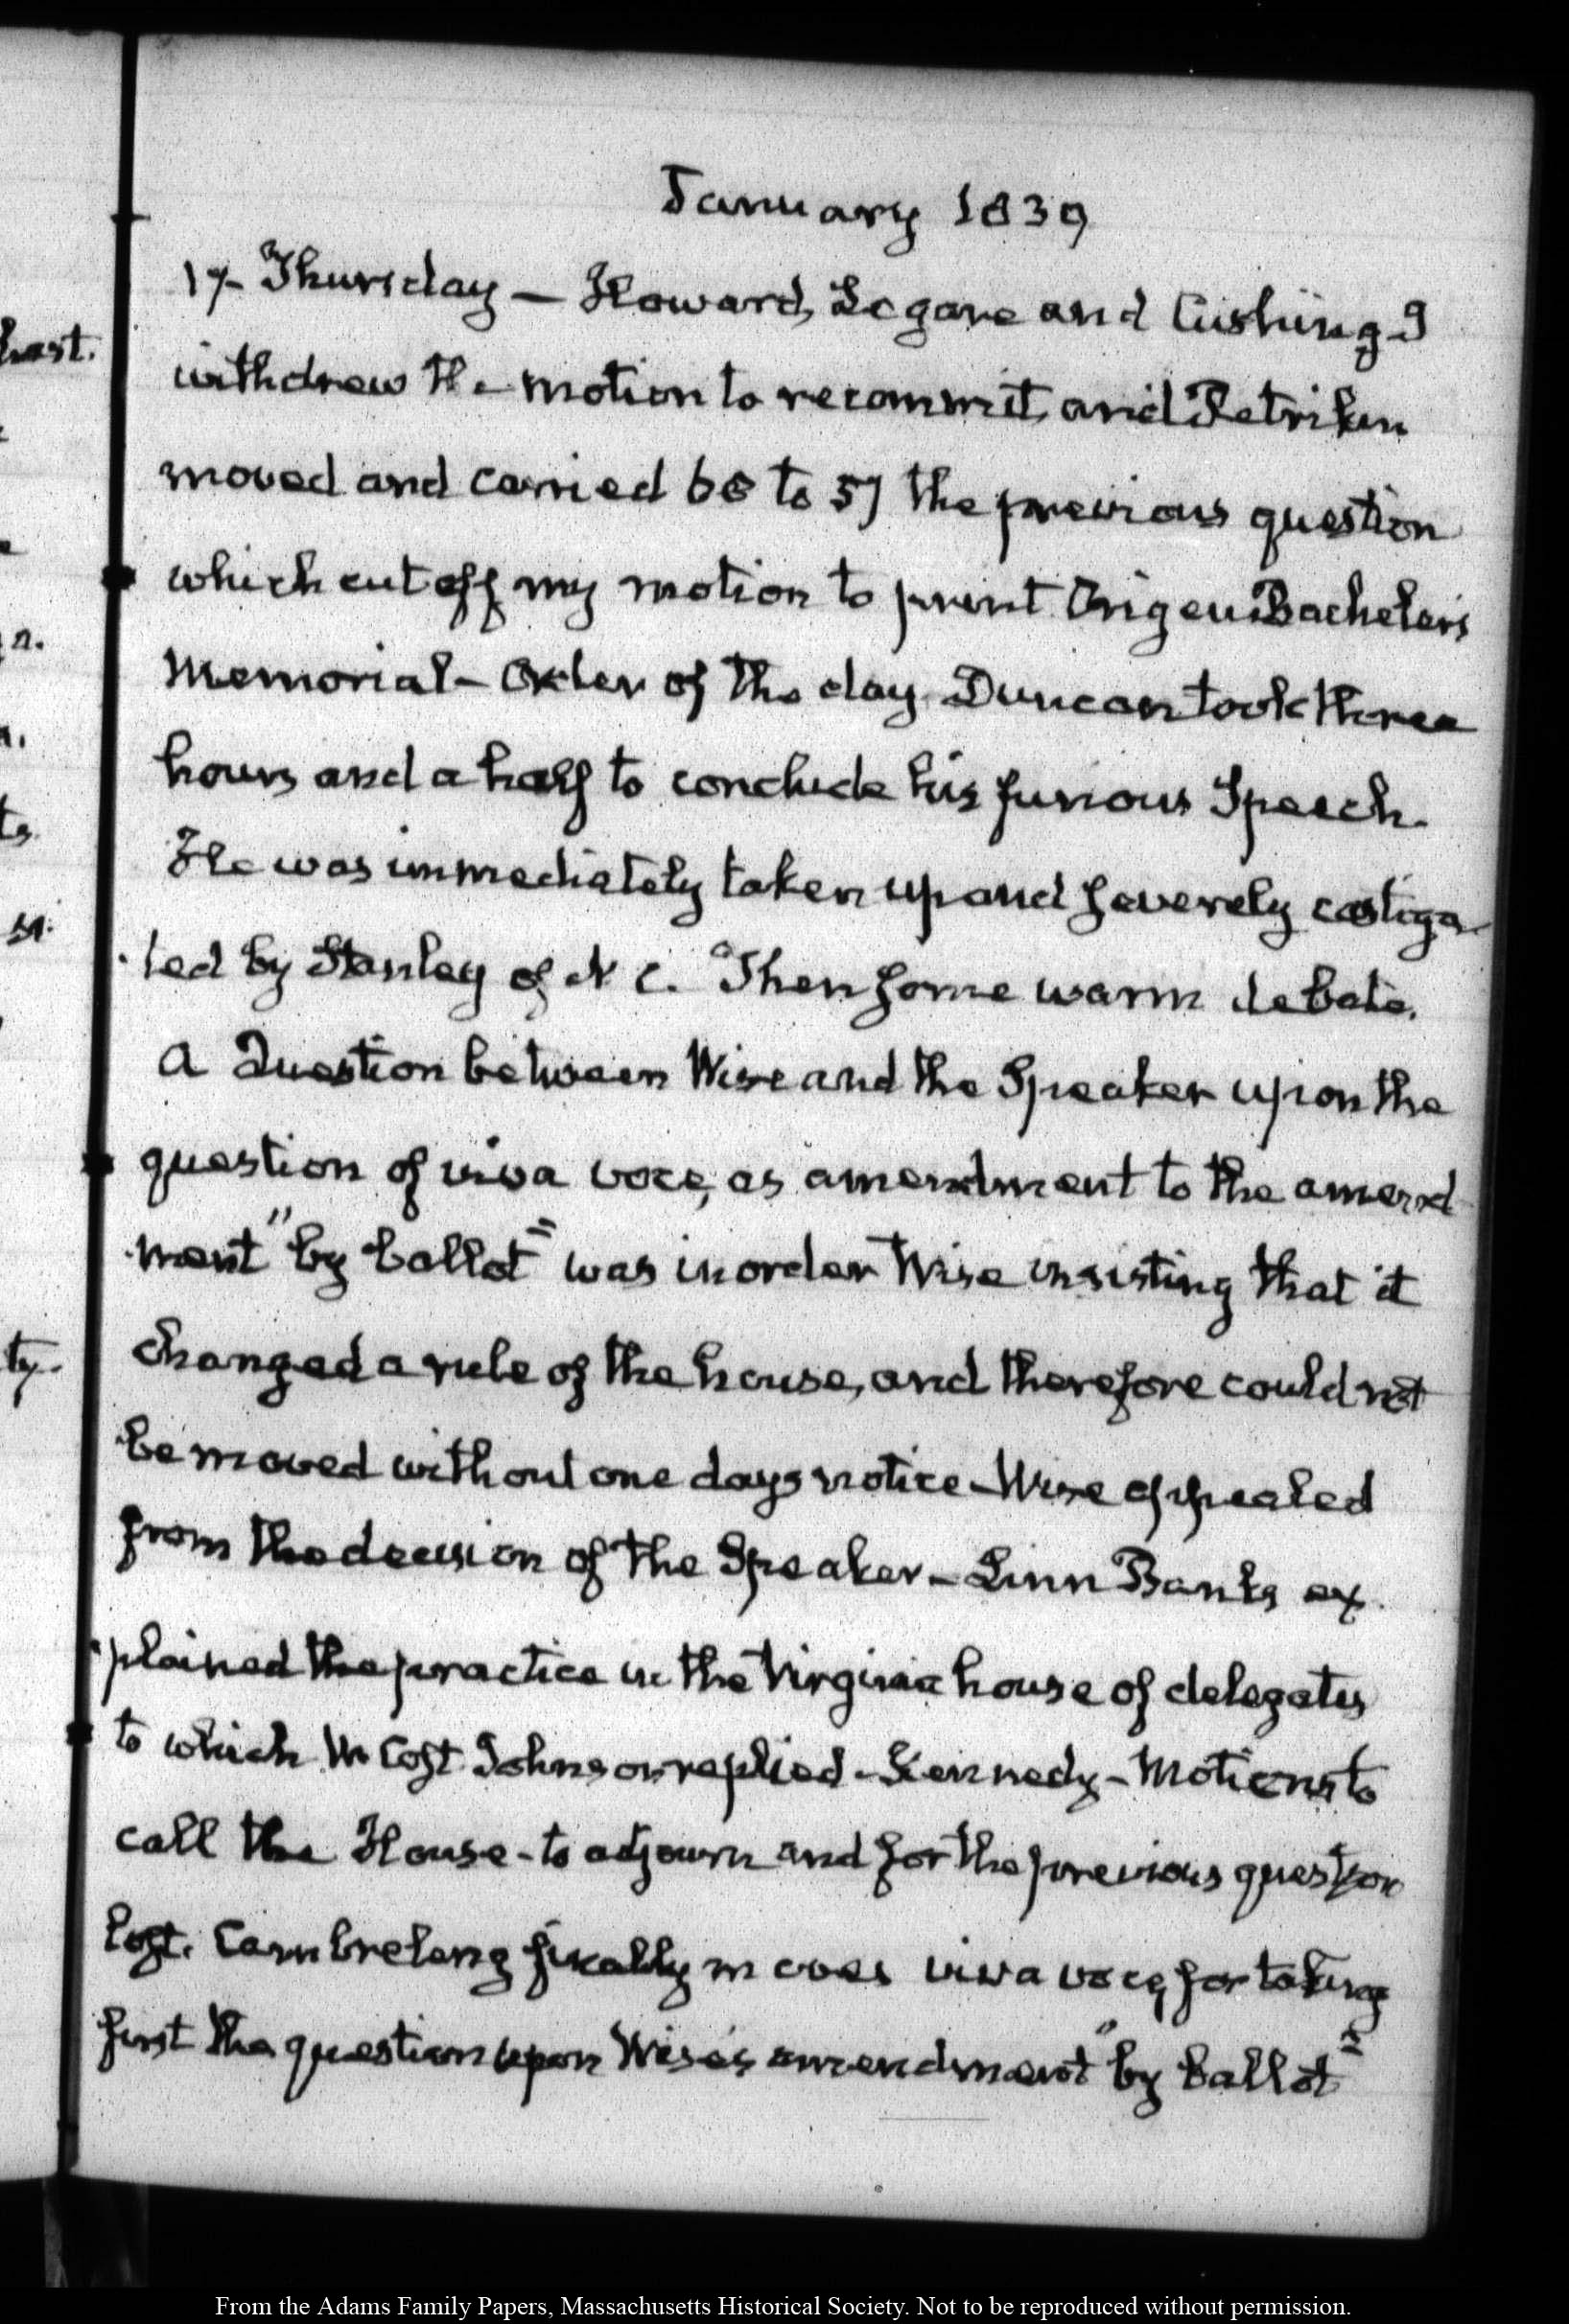 hast.
n.
ty.
January 1839
17. Thursday — Howard, Legare and Cushing. I
withdrew the motion to recommit, and Petriken
moved and carried 68 to 57 the previous question
which cut off my motion to print Origen Bacheler's
Memorial — Order of the day. Duncan took three
hours and a half to conclude his furious Speech.
He was immediately taken up and severely castiga-
ted by Stanley of N C. Then some warm debate.
A Question between Wise and the Speaker upon the
question of viva voce, as amendment to the amend-
ment "by ballot" was in order Wise insisting that it
changed a rule of the house, and therefore could not
be moved without one days notice — Wise appealed
from the decision of the Speaker — Linn Banks ex-
plained the practice in the Virginia house of delegates
to which W. Cost Johnson replied — Kennedy — Motions to
call the House — to adjourn and for the previous question
lost. Cambreleng finally moves viva voce, for taking
first the question upon Wise's amendment "by ballot"
From the Adams Family Papers, Massachusetts Historical Society. Not to be reproduced without permission.